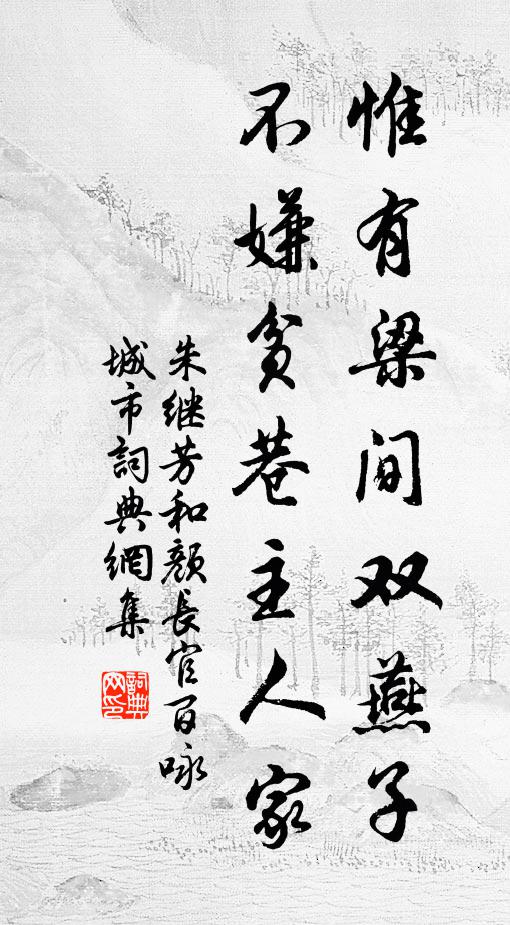 惟有梁间双燕子
不嫌贫巷主人家
朱继芳和颜长官百咏
城市詞典網集
詞典
网印